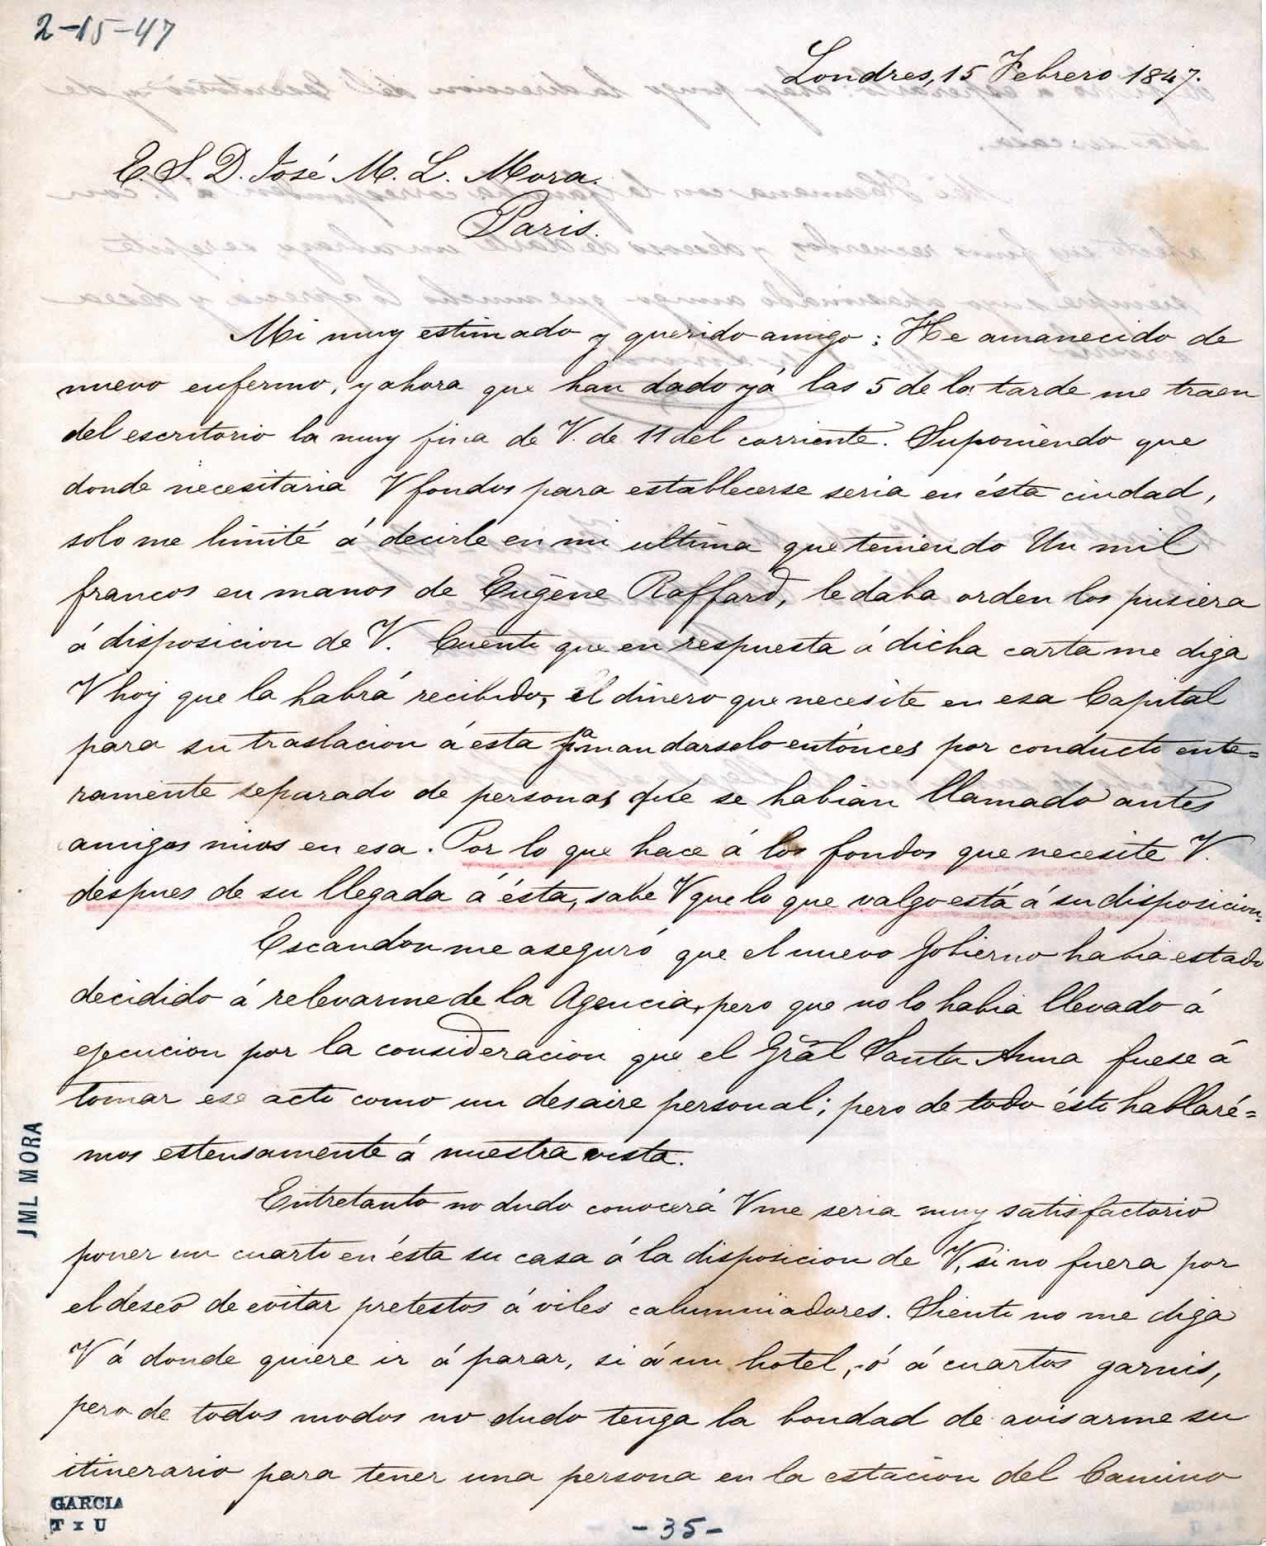 2-15-47
Londres, 15 Febrero 1847.
E. S. D. José M. L. Mora.
Paris.
Mi muy estimado y querido amigo: He amanecido de
nuevo enfermo, y ahora que han dado yá las 5 de la tarde me traen
del escritorio la muy fina de V. de 11 del corriente. Suponiendo que
donde necesitaria V fondos para establecerse seria en ésta ciudad,
solo me limité á decirle en mi ultima que teniendo Un mil
francos en manos de Eugène Raffard, le daba orden los pusiera
á disposicion de V. Cuento que en respuesta á dicha carta me diga
V hoy que la habrá recibido, el dinero que necesite en esa Capital
para su traslacion á esta pa mandarselo entónces por conducto ente=
ramente separado de personas que se habian llamado antes
amigos mios en esa. Por lo que hace á los fondos que necesite V.
despues de su llegada á ésta, sabe V que lo que valgo está á su disposicion.
Escandon me aseguró que el nuevo Gobierno habia estado
decidido á relevarme de la Agencia, pero que no lo habia llevado á
ejecucion por la consideracion que el Grâl Santa Anna fuese á
tomar ese acto como un desaire personal; pero de todo ésto hablaré=
mos estensamente á nuestra vista.
Entretanto no dudo conocerá V me seria muy satisfactorio
poner un cuarto en ésta su casa á la disposicion de V, si no fuera por
el deseo de evitar pretestos á viles calumniadores. Siento no me diga
V á donde quiere ir á parar, si á un hotel, ó á cuartos garnis,
pero de todos modos no dudo tenga la bondad de avisarme su
itinerario para tener una persona en la estacion del Camino
JML MORA
GARCIA
T x U
-35-